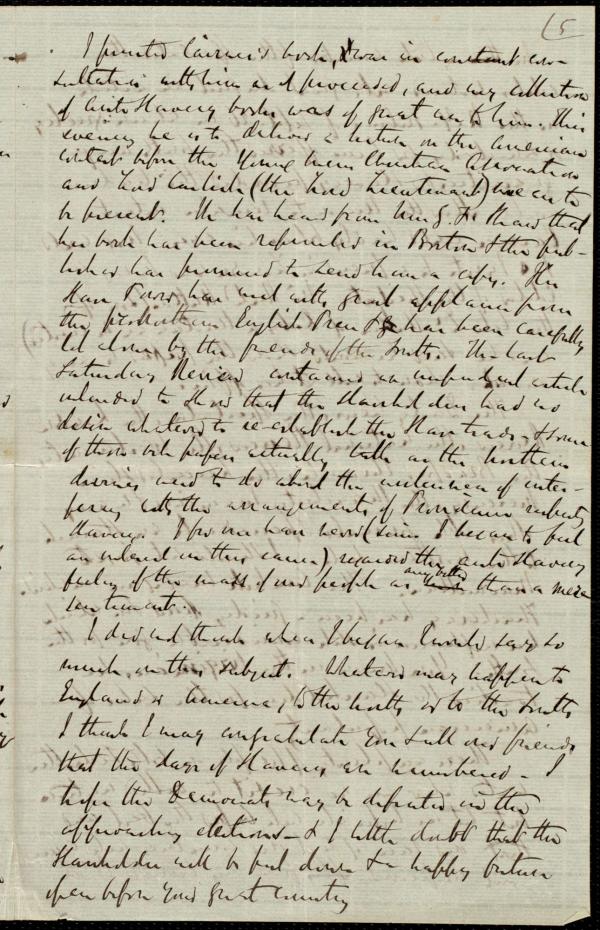 (5
I printed Cairnes's book, & was in constant con-
sultation with him as I proceeded, and my collection
of Anti Slavery books was of great use to him. This
evening he is to deliver a lecture on the American
contest before the Young Mens Christian Association
and Lord Carlisle (the Lord Lieutenant) is to
be present. He has heard from Mr. G. Shaw that
his book has been reprinted in Boston & the pub-
lisher has promised to send him a copy. The
Slave Power has met with great applause from
the pro Northern English Press & has been carefully
let alone by the friends of the South. The last
Saturday Review contained an impudent article
intended to show that the Slaveholders had no
desire whatever to re-establish the Slave trade - & some
of these vile papers actually talk as the Northern
divines used to do about the of inter-
fering with the arrangements of Providence respecting
Slavery. I for one have never (since I began to feel
an interest in this cause) regarded the anti Slavery
feeling of the mass of our people as any better than a mere
sentiment.
I did not think when I began I would say so
much on this subject. Whatever may happen to
England or America, to the North or to the South
I think I may congratulate you & all our friends
that the days of Slavery are numbered - I
hope the Democrats may be defeated in the
approaching elections - & I little doubt that the
Slaveholder will be put down & a happy future
open before your great country